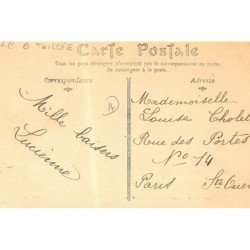 Carte Postale
Tous les pays étrangers n'acceptent pas la correspondance au recto,
Se renseigner à la poste.
Correspondance
Adresse
Mille baisers
Lucienne
14
Mademoiselle
Louise Cholet
Rue des Portes
No 14
Paris St Ouen